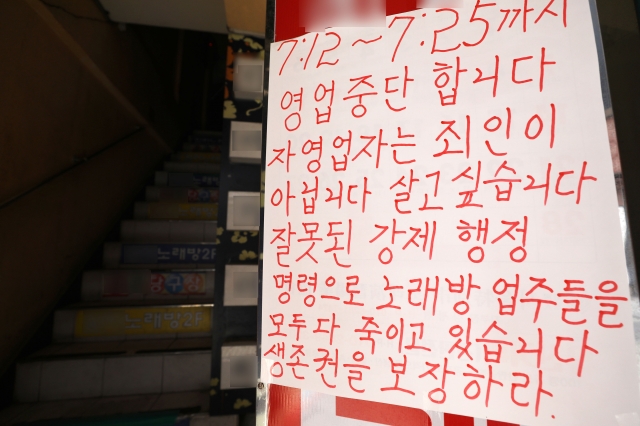 7:12~7:25까지
영업중단 합니다
자영업자는 죄인이
아닙니다 살고싶습니다
잘못된 강제 행정
명령으로 노래방 업주들을
모두 다 죽이고 있습니다
생존권을 보장하라.
노래방2F
당구장
노래방2F